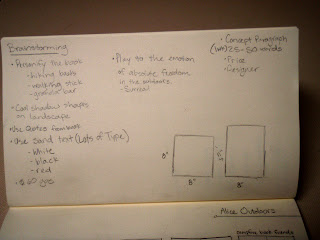 Brainstorming
• Personify the book
- hiking boots
- walking stick
- granola bar
• Cast shadow shapes
on landscape
• Use Quotes from book
• Use Sand text (Lots of Type)
- White
- black
- red
• Play to the emotion
of absolute freedom
in the outdoors
- Surreal
• Concept Paragraph
25-50 words
• Price
• Designer
8"
8"
8"
Alice Outdoors